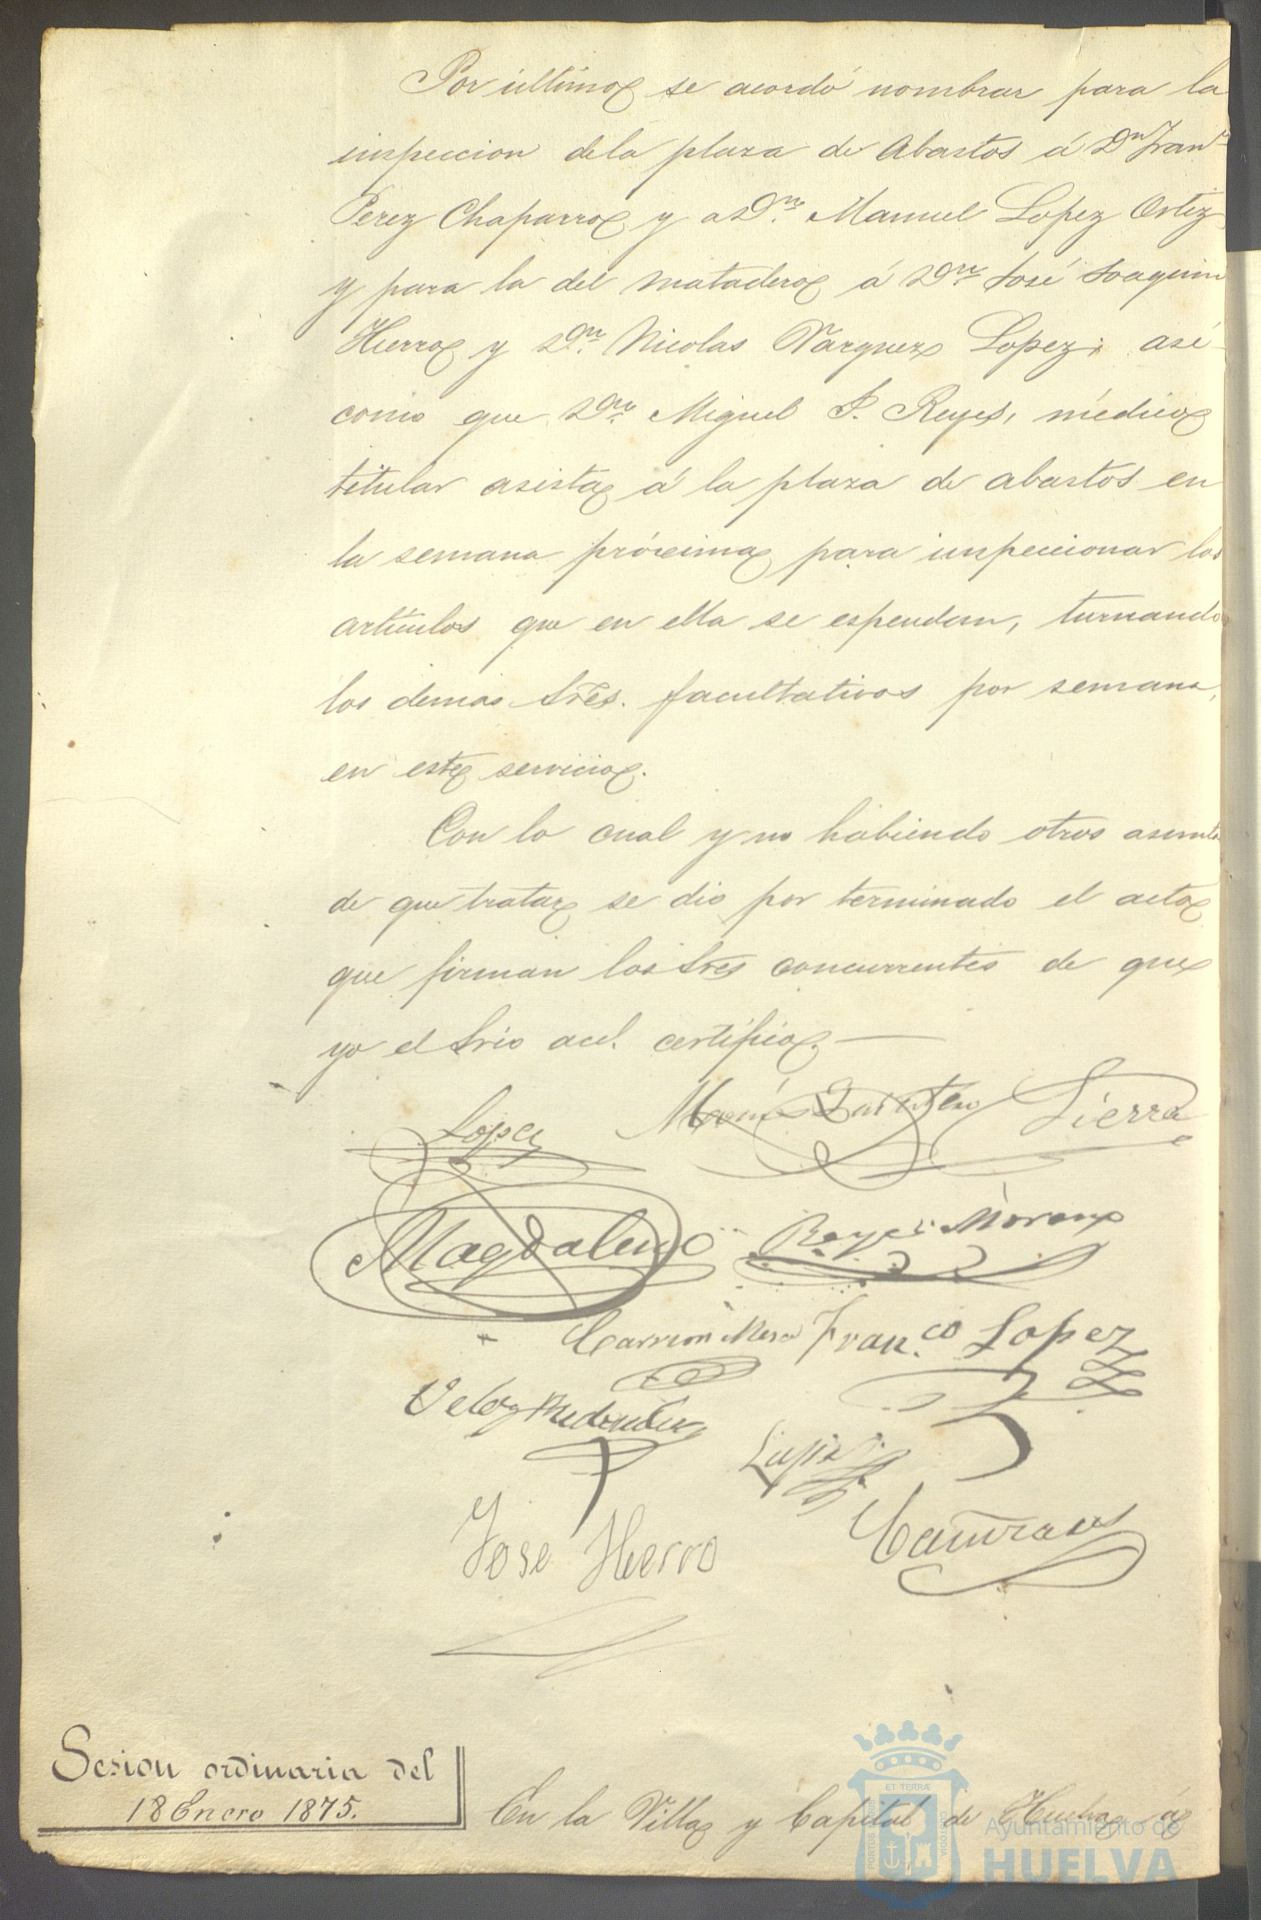 Por ultimo se acordó nombrar para la
inspeccion dela plaza de Abastos á Dn Franco
Perez Chaparro y a Dn. Manuel Lopez Ortiz
y para la del matadero á Dn José Joaquin
Hierro y Dn. Nicolas Vazquez Lopez; asi
como que Dn. Miguel P. Reyes, médico
titular asista á la plaza de abastos en
la semana próxima para inspeccionar los
articulos que en ella se espenden, turnando
los demas Sres. facultativos por semana,
en este servicio.
Con lo cual y no habiendo otros asuntos
de que tratar se dio por terminado el acto
que firman los Sres concurrentes de que
yo el Srio acl. certifico.
Lopez
Quintero
Sierra
Magdaleno
Reyes Moreno
Carrion
Franco Lopez
Jose Hierro
Sesion ordinaria del
18 Enero 1875.
En la Villa y Capital de Huelva á
ET TERRÆ
Ayuntamiento de
HUELVA